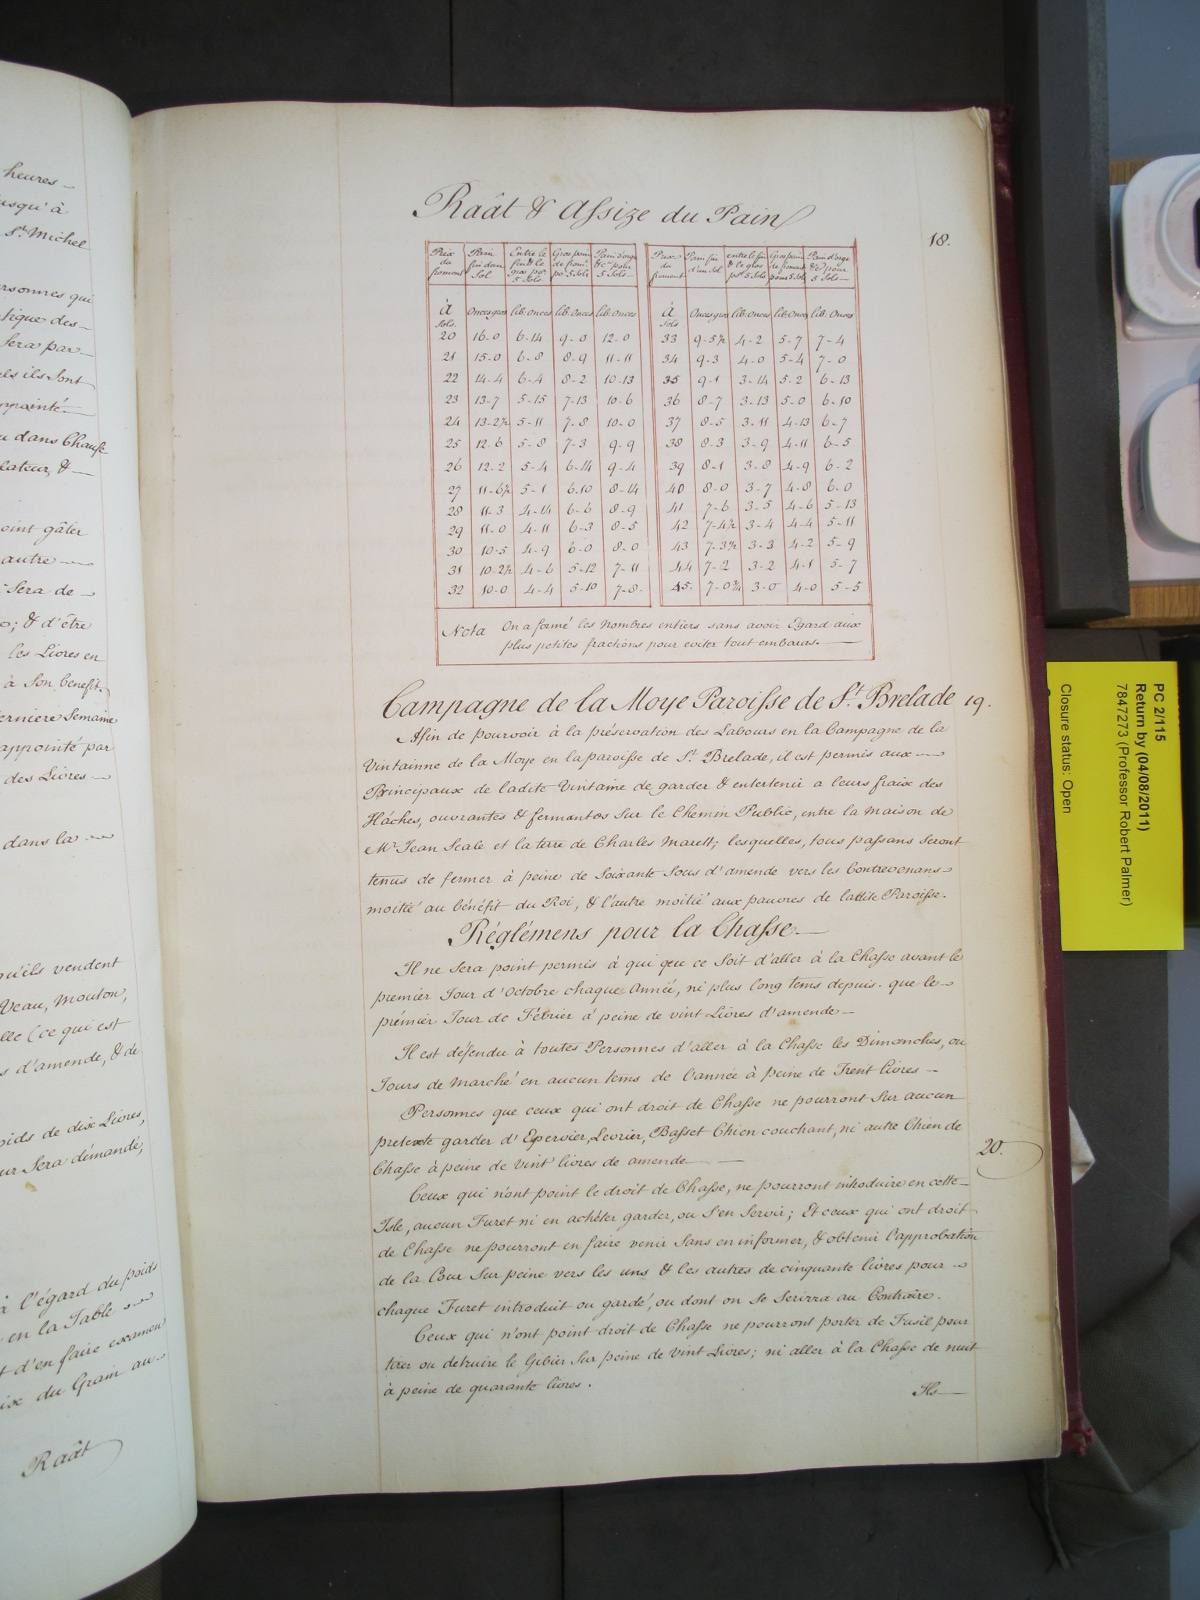 heures
usqu'à
St. Michel
rsonnes qui
tique des
Sera par
els ils Sont
ppointé
u dans Chausse
lateur, &
oint gâter
autre
Sera de
o; & d'être
les Livres en
à Son benefit.
erniere Semaine
appointé par
des Livres
dans la
qu'ils vendent
Veau, Mouton,
lle (ce qui est
s d'amende, & de
oids de dix Livres,
ur Sera démandé,
à l'égard du poids
en la Table
t d'en faire examen
ix du Grain au
Raât
Raât & Assize du Pain
18.
Prix du froment | Pain fin d'un Sol | Entre le fin & le gros pr. 5 Sols | Gros pain de from. pr. 5 Sols | Pain d'orge &c. pour 5 Sols | Prix du froment | Pain fin d'un Sol | entre le fin & le gros pr. 5 Sols | Gros pain de froment pour 5 Sols | Pain d'orge &c. pour 5 Sols
à Sols. | Onces gros | lib. onces | lib. onces | lib. onces | à Sols | Onces gros | lib. onces | lib. onces | lib. Onces
20 | 16-0 | 6-14 | 9-0 | 12-0 | 33 | 9-5½ | 4-2 | 5-7 | 7-4
21 | 15-0 | 6-8 | 8-9 | 11-11 | 34 | 9-3 | 4-0 | 5-4 | 7-0
22 | 14-4 | 6-4 | 8-2 | 10-13 | 35 | 9-1 | 3-14 | 5-2 | 6-13
23 | 13-7 | 5-15 | 7-13 | 10-6 | 36 | 8-7 | 3-13 | 5-0 | 6-10
24 | 13-2½ | 5-11 | 7-8 | 10-0 | 37 | 8-5 | 3-11 | 4-13 | 6-7
25 | 12-6 | 5-8 | 7-3 | 9-9 | 38 | 8-3 | 3-9 | 4-11 | 6-5
26 | 12-2 | 5-4 | 6-14 | 9-4 | 39 | 8-1 | 3-8 | 4-9 | 6-2
27 | 11-6½ | 5-1 | 6-10 | 8-14 | 40 | 8-0 | 3-7 | 4-8 | 6-0
28 | 11-3 | 4-14 | 6-6 | 8-9 | 41 | 7-6 | 3-5 | 4-6 | 5-13
29 | 11-0 | 4-11 | 6-3 | 8-5 | 42 | 7-4½ | 3-4 | 4-4 | 5-11
30 | 10-5 | 4-9 | 6-0 | 8-0 | 43 | 7-3½ | 3-3 | 4-2 | 5-9
31 | 10-2½ | 4-6 | 5-12 | 7-11 | 44 | 7-2 | 3-2 | 4-1 | 5-7
32 | 10-0 | 4-4 | 5-10 | 7-8 | 45 | 7-0¾ | 3-0 | 4-0 | 5-5
Nota On a formé les Nombres entiers sans avoir Egard aux
plus petites fractions pour eviter tout embaras.
Campagne de la Moye Paroisse de St. Brelade 19.
Afin de pourvoir à la préservation des Labours en la Campagne de la
Vintainne de la Moye en la paroisse de St. Brelade, il est permis aux
Principaux de ladite Vintaine de garder & entertenir a leurs fraix des
Háches, ouvrantes & fermantes Sur le Chemin Public, entre la Maison de
Mr. Jean Seale et la terre de Charles Marett; lesquelles, tous passans Seront
tenus de fermer à peine de Soixante Sous d'amende vers les Contrevenans
moitié au bénéfit du Roi, & l'autre moitié aux pauvres de ladite Paroisse.
Réglémens pour la Chasse
Il ne Sera point permis à qui que ce Soit d'aller à la Chasse avant le
premier Jour d'Octobre chaque Année, ni plus long tems depuis que le
prémier Jour de Février á peine de vint Livres d'amende
Il est défendu à toutes Personnes d'aller à la Chasse les Dimanches, ou
Jours de Marché en aucun tems de l'année à peine de Trent livres
Personnes que ceux qui ont droit de Chasse ne pourront Sur aucun
pretexte garder d'Epervier, Levrier, Basset Chien couchant, ni autre Chien de
Chasse à peine de vint livres de amende
20.
Ceux qui n'ont point le droit de Chasse, ne pourront introduire en cette
Isle, aucun Furet ni en achéter garder, ou S'en Servir; Et ceux qui ont droit
de Chasse ne pourront en faire venir Sans en informer, & obtenir l'approbation
de la Cour Sur peine vers les uns & les autres de cinquante livres pour
chaque Furet introduit ou gardé, ou dont on Se Servira au Contraire.
Ceux qui n'ont point droit de Chasse ne pourront porter de Fusil pour
tirer ou detruire le Gibier Sur peine de vint Livres; ni aller à la Chasse de nuit
à peine de quarante livres.
Ils
PC 2/115
Return by (04/08/2011)
7847273 (Professor Robert Palmer)
Closure status: Open